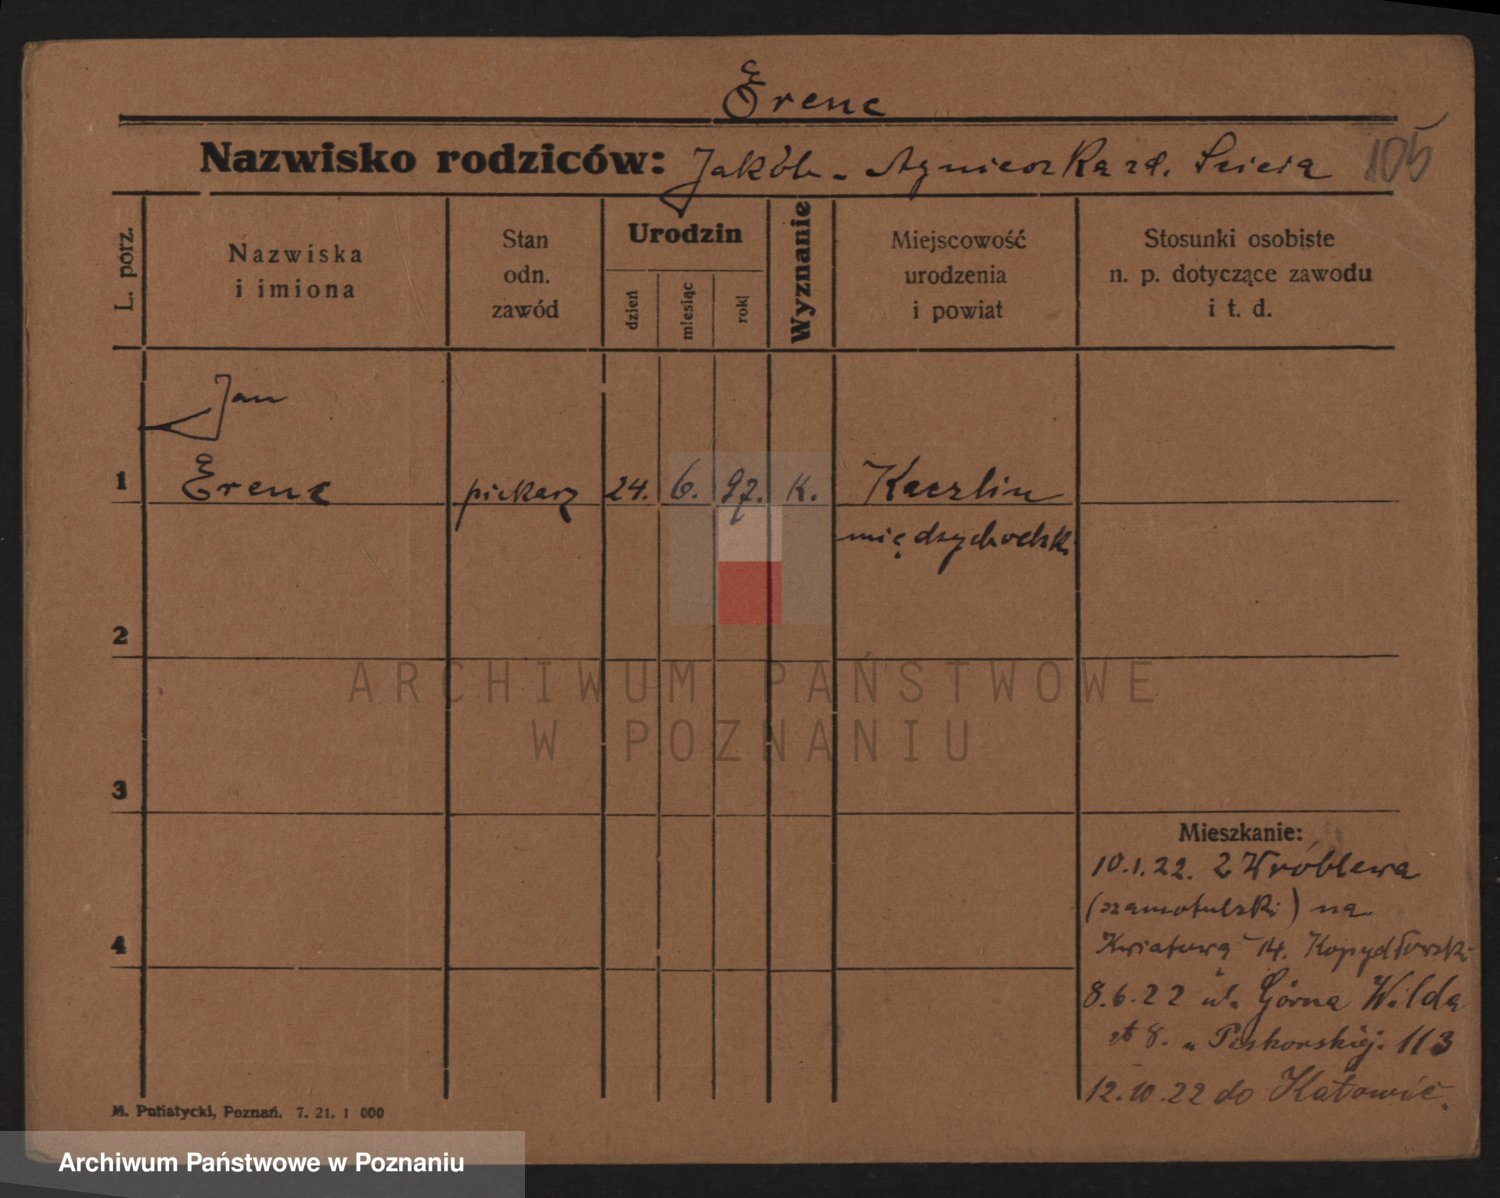 Erenc
Nazwisko rodziców: Jakób - Agnieszka zd. 105
L. porz.
Nazwiska
i imiona
Stan
odn.
zawód
Urodzin
dzień
miesiąc
rok
Wyznanie
Miejscowość
urodzenia
i powiat
Stosunki osobiste
n. p. dotyczące zawodu
i t. d.
Jan
1 Erenc piekarz 24. 6. 97. K. Kaczlin
międzychodzki
2
3
4
Mieszkanie:
10.1.22. z Wróblewa
(szamotulski) na
Kwiatową 14. Kopydłowski
8.6.22 ul. Górna Wilda
8. u Piskorskiej. 113
12.10.22 do Katowic.
M. Putiatycki, Poznań. 7. 21. 1 000
ARCHIWUM PAŃSTWOWE
W POZNANIU
Archiwum Państwowe w Poznaniu